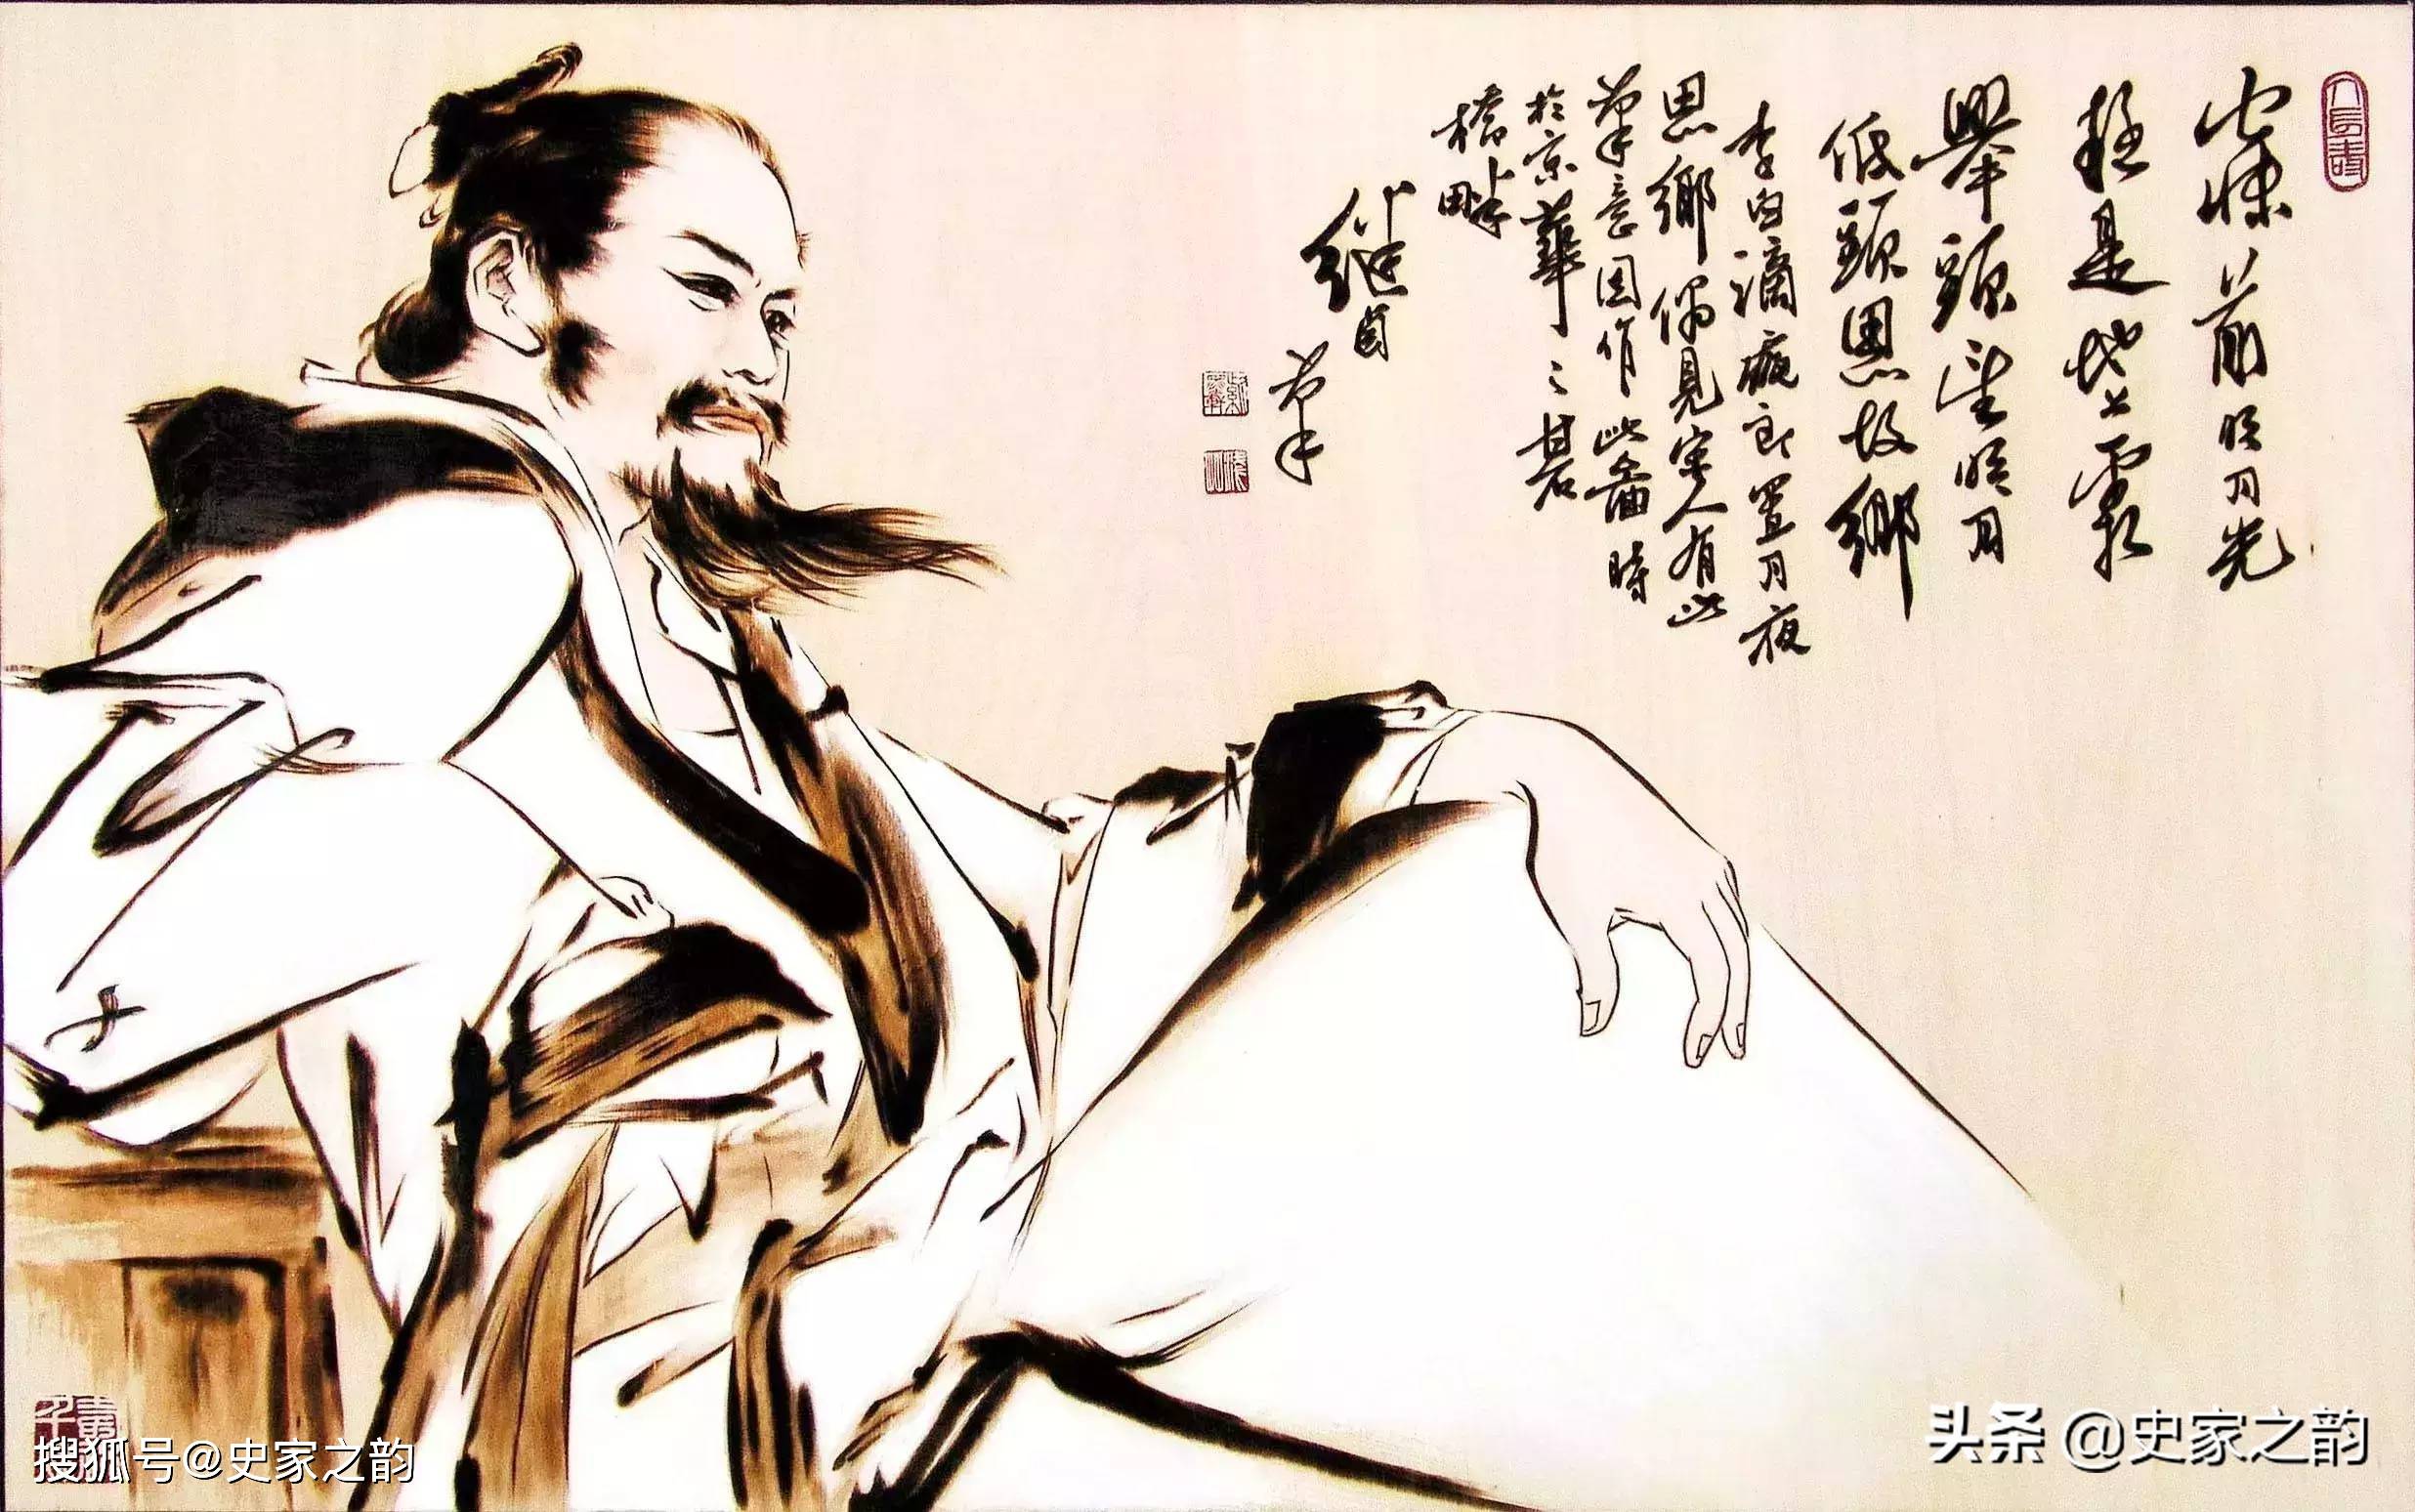 牀前明月光
疑是地上霜
舉頭望明月
低頭思故鄉
李白謫夜郎置月夜
思鄉偶見宋人有此
筆意因作此圖時
於京華
橋畔
继卣筆
搜狐号@史家之韵
头条 @史家之韵